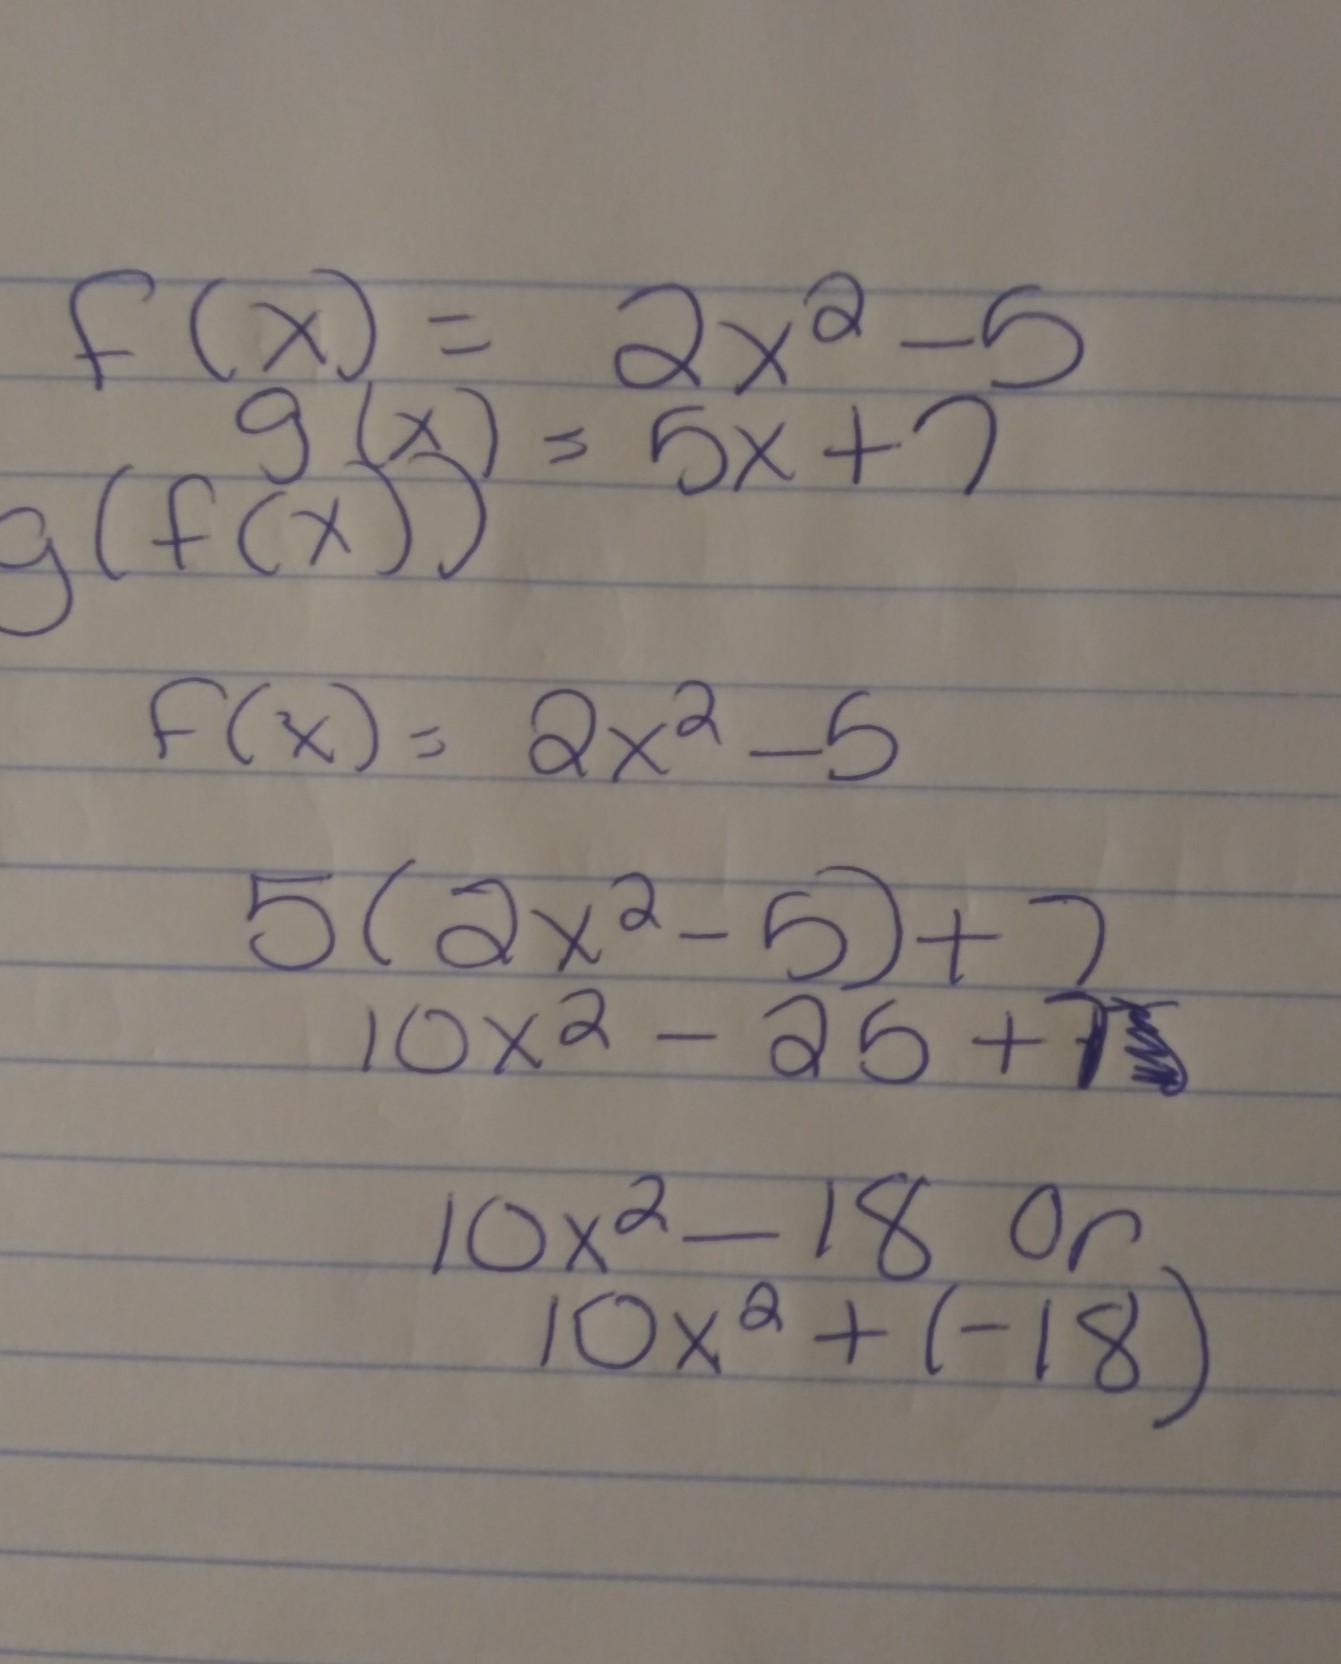 f(x) = 2x² - 5
g(x) = 5x + 7
g(f(x))
f(x) = 2x² - 5
5(2x² - 5) + 7
10x² - 25 + 7
10x² - 18 Or
10x² + (-18)